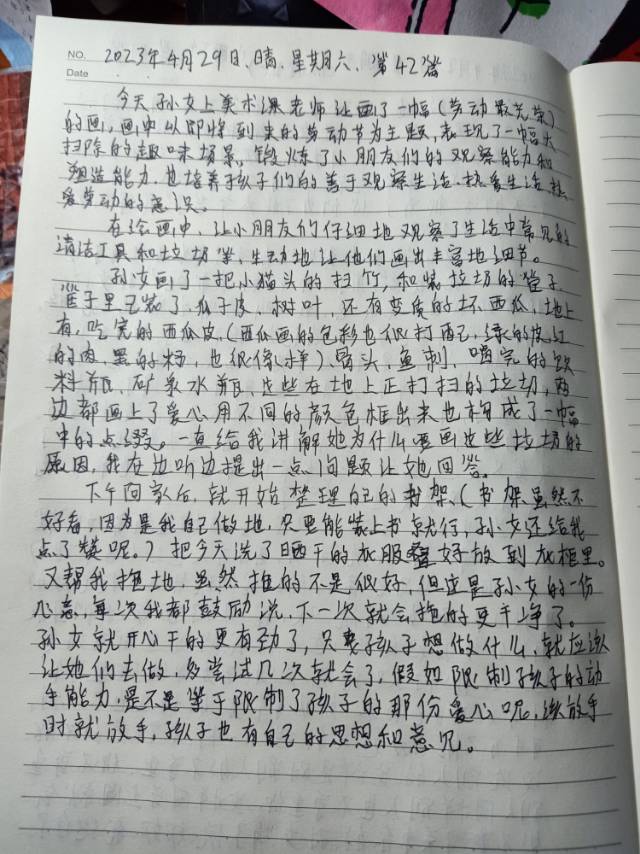 NO. 2023年4月29日、晴、星期六、第42篇
Date
今天孙女上美术课老师让画了一幅(劳动最光荣)
的画,画中以即将到来的劳动节为主题,表现了一幅大
扫除的趣味场景。锻炼了小朋友们的观察能力和
塑造能力,也培养孩子们的善于观察生活.热爱生活.热
爱劳动的意识。
在绘画中,让小朋友们仔细地观察了生活中常见的
清洁工具和垃圾等,生动地让他们画出丰富地细节。
孙女画了一把小猫头的扫竹,和装垃圾的筐子,
筐子里已装了、瓜子皮、树叶,还有变质的坏西瓜,地上
有,吃完的西瓜皮,(西瓜画的色彩也很打眼,绿的皮,红
的肉、黑的籽,也很像样)、骨头、鱼刺、喝完的饮
料瓶、矿泉水瓶,这些在地上正打扫的垃圾,两
边都画上了爱心用不同的颜色框出来也构成了一幅
中的点缀。一直给我讲解她为什么要画这些垃圾的
原因,我在边听边提出一点问题让她回答。
下午回家后,就开始整理自己的书架、(书架虽然不
好看,因为是我自己做地,只要能装上书就行,孙女还给我
点了赞呢。)把今天洗了晒干的衣服叠好放到衣柜里。
又帮我拖地,虽然拖的不是很好,但这是孙女的一份
心意,每次我都鼓励说,下一次就会拖的更干净了。
孙女就开心干的更有劲了,只要孩子想做什么,就应该
让她们去做,多尝试几次就会了,假如限制孩子的动
手能力,是不是等于限制了孩子的那份爱心呢,该放手
时就放手,孩子也有自己的思想和意见。